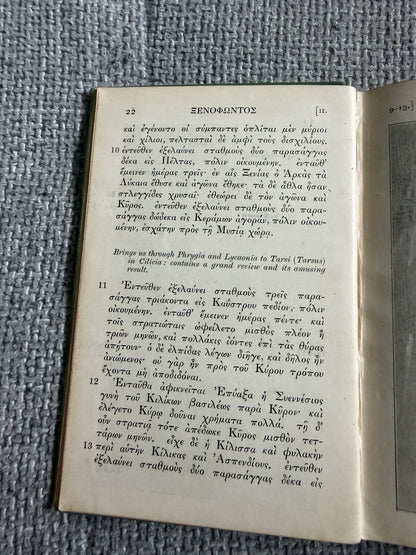 22 ΞΕΝΟΦΩΝΤΟΣ [II.
καὶ ἐγένοντο οἱ σύμπαντες ὁπλῖται μὲν μύριοι
καὶ χίλιοι, πελτασταὶ δὲ ἀμφὶ τοὺς δισχιλίους.
10 ἐντεῦθεν ἐξελαύνει σταθμοὺς δύο παρασάγγας
δέκα εἰς Πέλτας, πόλιν οἰκουμένην. ἐνταῦθ'
ἔμεινεν ἡμέρας τρεῖς· ἐν αἷς Ξενίας ὁ Ἀρκὰς τὰ
Λύκαια ἔθυσε καὶ ἀγῶνα ἔθηκε· τὰ δὲ ἆθλα ἦσαν
στλεγγίδες χρυσαῖ· ἐθεώρει δὲ τὸν ἀγῶνα καὶ
Κῦρος. ἐντεῦθεν ἐξελαύνει σταθμοὺς δύο παρα-
σάγγας δώδεκα εἰς Κεράμων ἀγοράν, πόλιν οἰκου-
μένην, ἐσχάτην πρὸς τῇ Μυσίᾳ χώρᾳ.
Brings us through Phrygia and Lycaonia to Tarsi (Tarsus)
in Cilicia: contains a grand review and its amusing
result.
11 Ἐντεῦθεν ἐξελαύνει σταθμοὺς τρεῖς παρα-
σάγγας τριάκοντα εἰς Καΰστρου πεδίον, πόλιν
οἰκουμένην. ἐνταῦθ' ἔμεινεν ἡμέρας πέντε· καὶ
τοῖς στρατιώταις ὠφείλετο μισθὸς πλέον ἢ
τριῶν μηνῶν, καὶ πολλάκις ἰόντες ἐπὶ τὰς θύρας
ἀπῄτουν· ὁ δὲ ἐλπίδας λέγων διῆγε, καὶ δῆλος ἦν
ἀνιώμενος· οὐ γὰρ ἦν πρὸς τοῦ Κύρου τρόπου
ἔχοντα μὴ ἀποδιδόναι.
12 Ἐνταῦθα ἀφικνεῖται Ἐπύαξα ἡ Συεννέσιος
γυνὴ τοῦ Κιλίκων βασιλέως παρὰ Κῦρον· καὶ
ἐλέγετο Κύρῳ δοῦναι χρήματα πολλά. τῇ δ'
οὖν στρατιᾷ τότε ἀπέδωκε Κῦρος μισθὸν τετ-
τάρων μηνῶν. εἶχε δὲ ἡ Κίλισσα καὶ φυλακὴν
13 περὶ αὑτὴν Κίλικας καὶ Ἀσπενδίους. ἐντεῦθεν
ἐξελαύνει σταθμοὺς δύο παρασάγγας δέκα εἰς
9-13.]